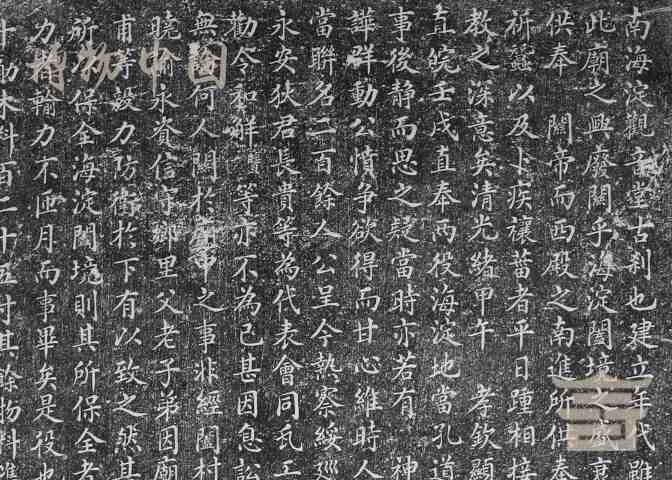 南海淀觀音堂古刹也建立年代雖
此廟之興廢關乎海淀闔境之盛衰
供奉 關帝而西殿之南進所供奉
祈蠶以及卜疾禳菑者平日踵相接
教之深意矣清光緒甲午 孝欽顯
直皖壬戌直奉兩役海淀地當孔道
事後静而思之疑當時亦若有 神
譁群動公憤争欲得而甘心維時人
當聯名二百餘人公呈今熱察綏巡
永安狄君長貴等為代表會同乱工
勸令和解 等亦不為已甚因息訟
無論何人關於 之事非經闔村
曉諭永資信守鄉里父老子弟因廟
甫等設力防衛於下有以致之然其
所 保全海淀闔境則其所保全者
力 輸力不匝月而事畢矣是役也
十 木料百二十五寸其餘物料准
博物中国